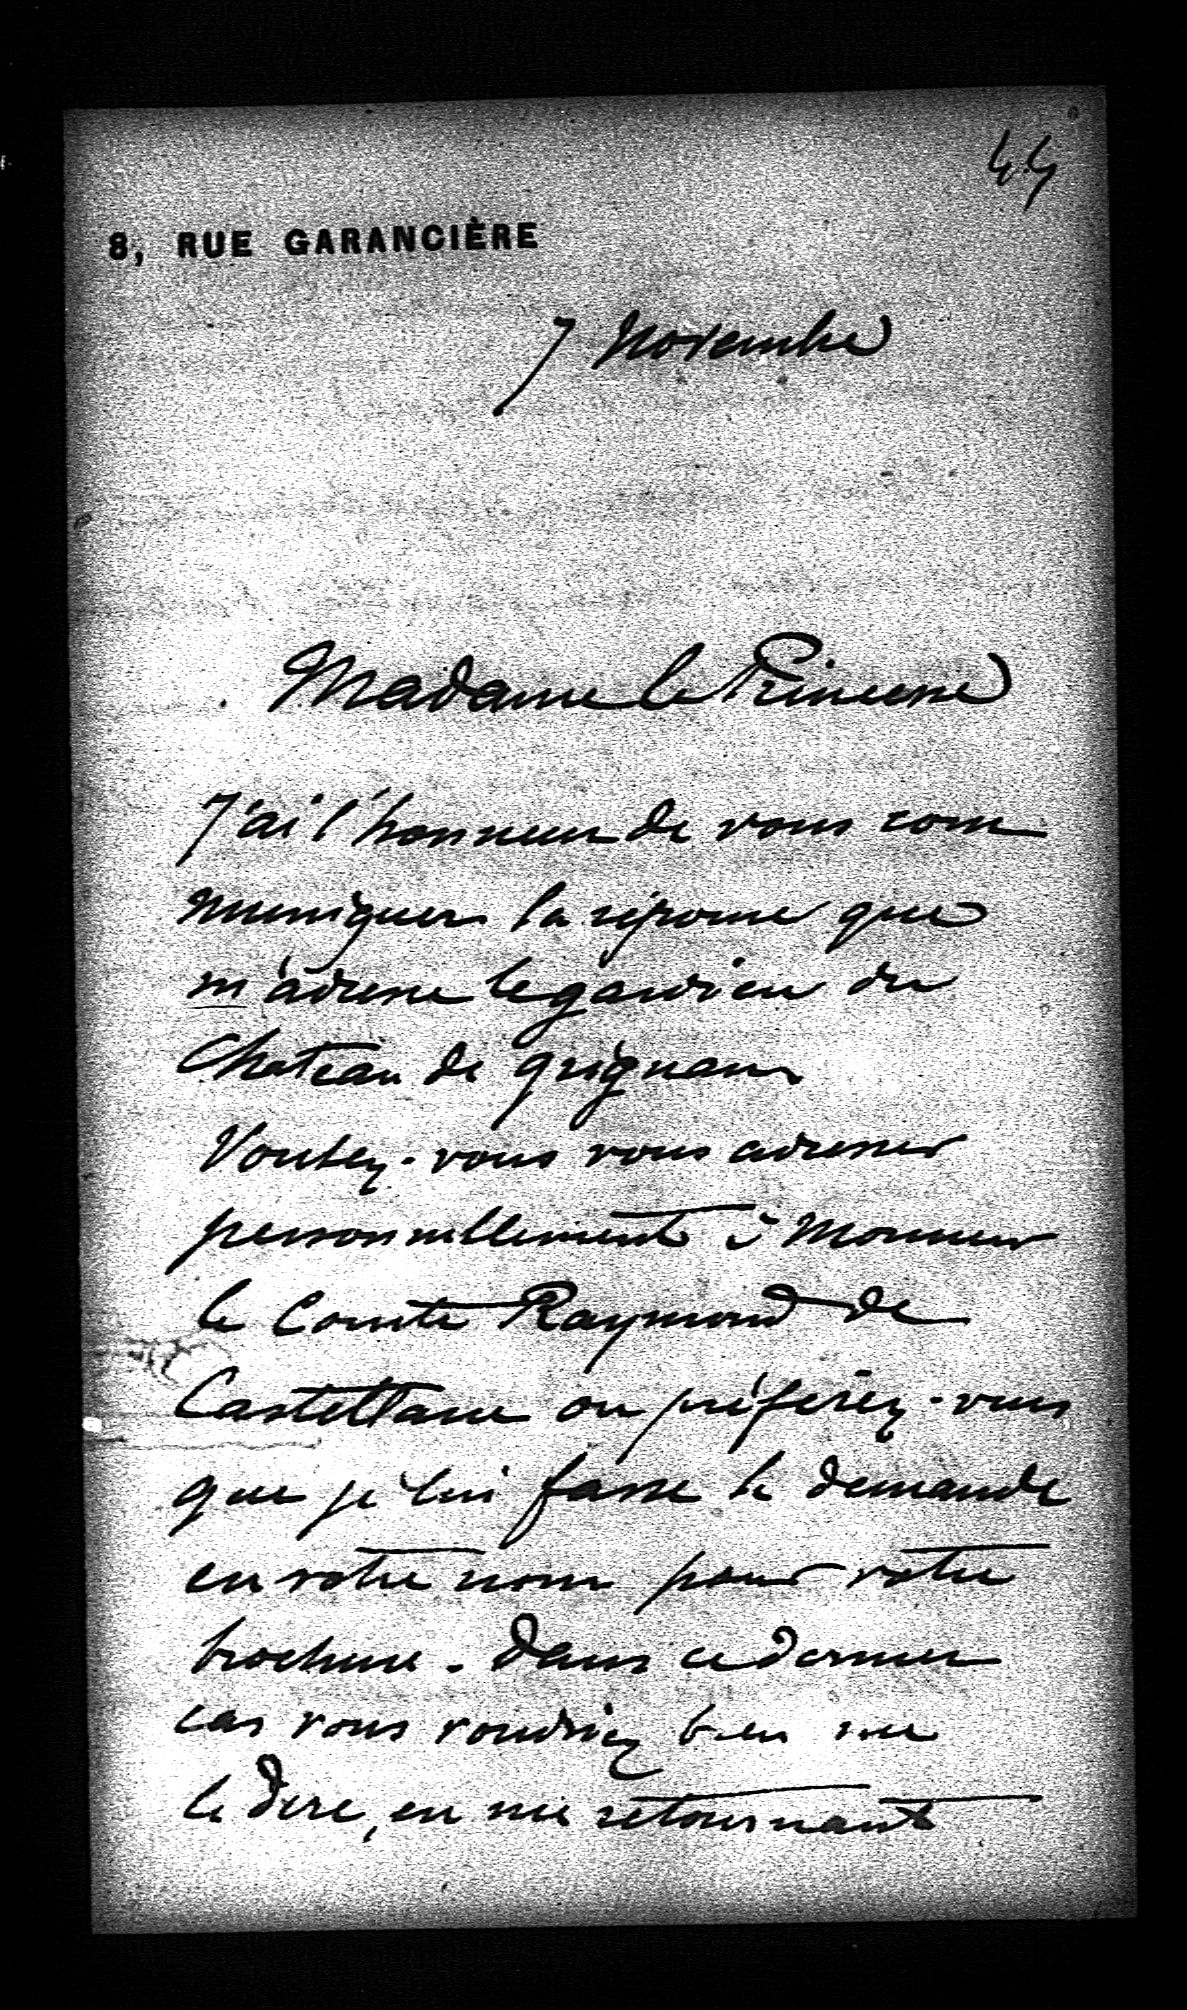 44
8, RUE GARANCIÈRE
7 Novembre
Madame la Princesse
J'ai l'honneur de vous com
muniquer la réponse que
m'adresse le gardien du
Chateau de Grignan
Voulez-vous vous adresser
personnellement à Monsieur
le Comte Raymond de
Castellane ou préférez-vous
que je lui fasse la demande
en votre nom pour votre
brochure. Dans ce dernier
cas vous voudriez bien me
le dire, en me retournant